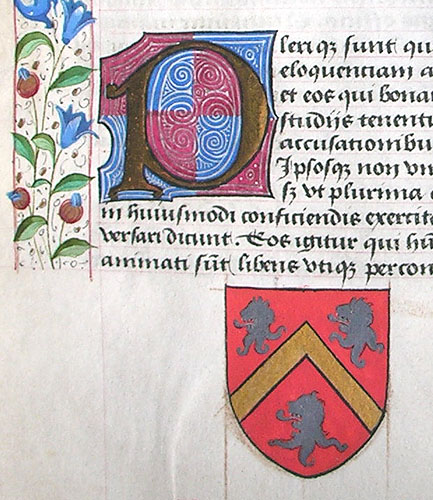 Pleriqʒ sunt qu
eloquentiam a
et eos qui bonar
studijs tenentu
accusationibu
Ipsosqʒ non vn
sʒ vt plurima
in huiusmodi conficiendis exercit
versari dicunt. Eos igitur qui
animati sūt liberis vtiqʒ percon